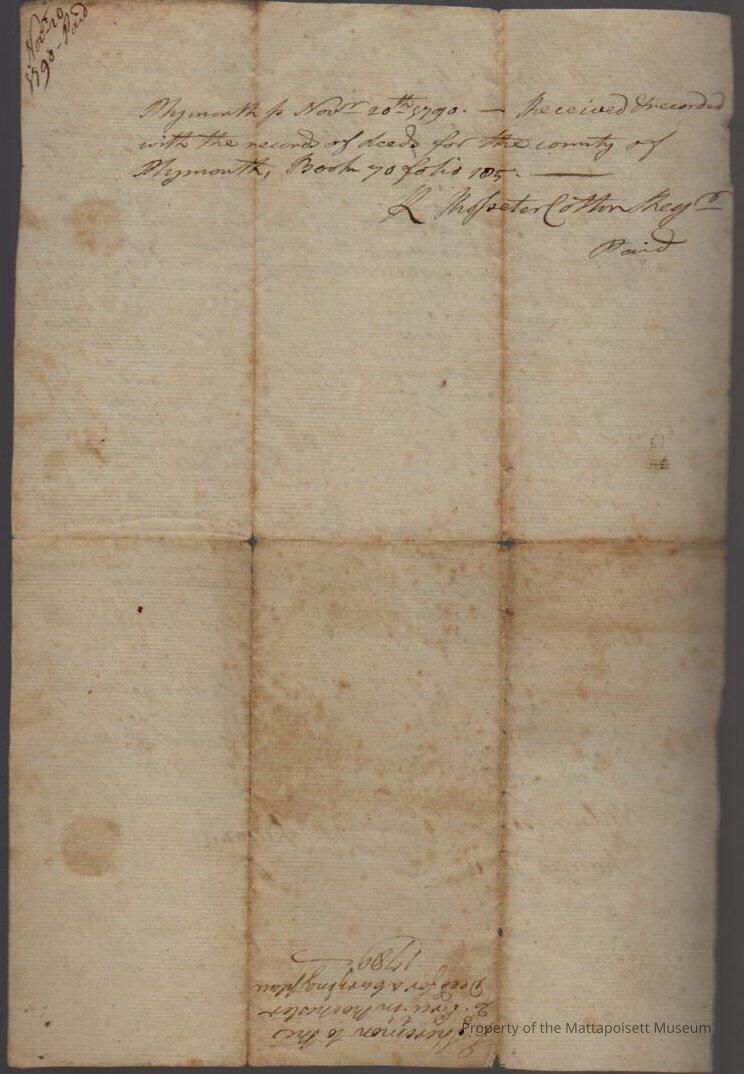 Novr 20
1790 - Paid
Plymouth ss Novr 20th 1790. — Received & recorded
with the records of deeds for the county of
Plymouth, Book 70 folio 185. —
Rosseter Cotton Regr
Paid
to the
in Rochester
Deed for a burying place
1789
Property of the Mattapoisett Museum